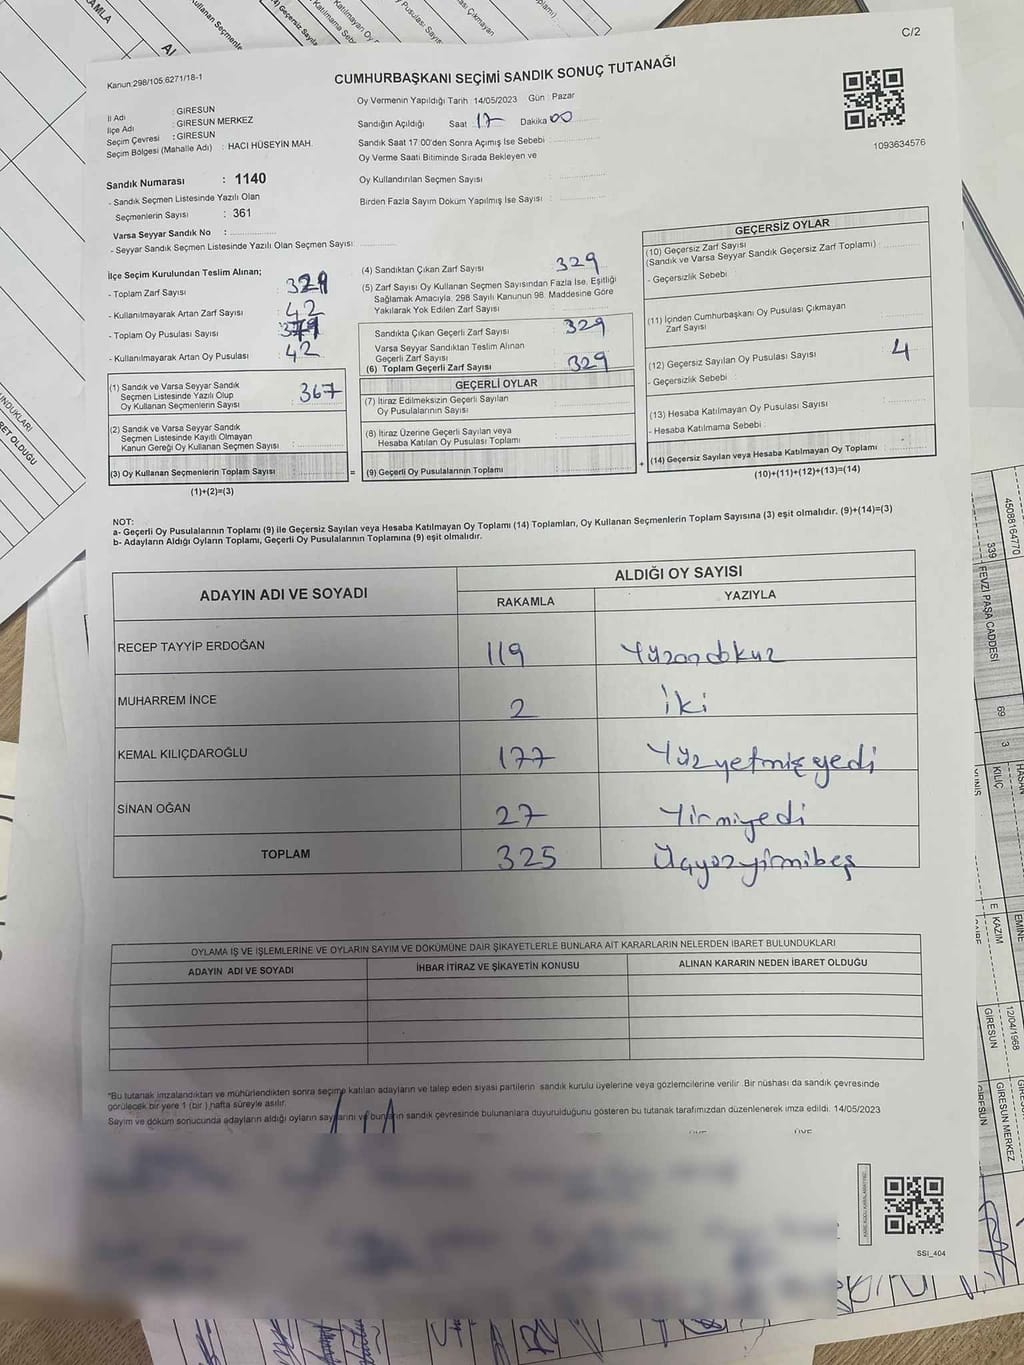 C/2
Kanun:298/105.6271/18-1
CUMHURBAŞKANI SEÇİMİ SANDIK SONUÇ TUTANAĞI
İl Adı : GİRESUN
İlçe Adı : GİRESUN MERKEZ
Seçim Çevresi : GİRESUN
Seçim Bölgesi (Mahalle Adı) : HACI HÜSEYİN MAH.
Oy Vermenin Yapıldığı Tarih :14/05/2023 Gün : Pazar
Sandığın Açıldığı Saat : 17 Dakika : 00
Sandık Saat 17.00'den Sonra Açımış İse Sebebi :
Oy Verme Saati Bitiminde Sırada Bekleyen ve
Oy Kullandırılan Seçmen Sayısı :
Birden Fazla Sayım Döküm Yapılmış İse Sayısı :
1093634576
Sandık Numarası : 1140
- Sandık Seçmen Listesinde Yazılı Olan
Seçmenlerin Sayısı : 361
Varsa Seyyar Sandık No :
- Seyyar Sandık Seçmen Listesinde Yazılı Olan Seçmen Sayısı:
İlçe Seçim Kurulundan Teslim Alınan;
- Toplam Zarf Sayısı :
- Kullanılmayarak Artan Zarf Sayısı : 42
- Toplam Oy Pusulası Sayısı :
- Kullanılmayarak Artan Oy Pusulası : 42
(1) Sandık ve Varsa Seyyar Sandık
Seçmen Listesinde Yazılı Olup
Oy Kullanan Seçmenlerin Sayısı : 367
(2) Sandık ve Varsa Seyyar Sandık
Seçmen Listesinde Kayıtlı Olmayan
Kanun Gereği Oy Kullanan Seçmen Sayısı :
(3) Oy Kullanan Seçmenlerin Toplam Sayısı
(1)+(2)=(3)
(4) Sandıktan Çıkan Zarf Sayısı : 329
(5) Zarf Sayısı Oy Kullanan Seçmen Sayısından Fazla İse, Eşitliği
Sağlamak Amacıyla, 298 Sayılı Kanunun 98. Maddesine Göre
Yakılarak Yok Edilen Zarf Sayısı :
Sandıkta Çıkan Geçerli Zarf Sayısı : 329
Varsa Seyyar Sandıktan Teslim Alınan
Geçerli Zarf Sayısı :
(6) Toplam Geçerli Zarf Sayısı : 329
GEÇERLİ OYLAR
(7) İtiraz Edilmeksizin Geçerli Sayılan
Oy Pusulalarının Sayısı :
(8) İtiraz Üzerine Geçerli Sayılan veya
Hesaba Katılan Oy Pusulası Toplamı :
= (9) Geçerli Oy Pusulalarının Toplamı :
GEÇERSİZ OYLAR
(10) Geçersiz Zarf Sayısı
(Sandık ve Varsa Seyyar Sandık Geçersiz Zarf Toplamı) :
- Geçersizlik Sebebi :
(11) İçinden Cumhurbaşkanı Oy Pusulası Çıkmayan
Zarf Sayısı :
(12) Geçersiz Sayılan Oy Pusulası Sayısı : 4
- Geçersizlik Sebebi :
(13) Hesaba Katılmayan Oy Pusulası Sayısı :
- Hesaba Katılmama Sebebi :
+ (14) Geçersiz Sayılan veya Hesaba Katılmayan Oy Toplamı :
(10)+(11)+(12)+(13)=(14)
NOT:
a- Geçerli Oy Pusulalarının Toplamı (9) ile Geçersiz Sayılan veya Hesaba Katılmayan Oy Toplamı (14) Toplamları, Oy Kullanan Seçmenlerin Toplam Sayısına (3) eşit olmalıdır. (9)+(14)=(3)
b- Adayların Aldığı Oyların Toplamı, Geçerli Oy Pusulalarının Toplamına (9) eşit olmalıdır.
ADAYIN ADI VE SOYADI ALDIĞI OY SAYISI
RAKAMLA YAZIYLA
RECEP TAYYİP ERDOĞAN 119 Yüzondokuz
MUHARREM İNCE 2 İki
KEMAL KILIÇDAROĞLU 177 Yüzyetmişyedi
SİNAN OĞAN 27 Yirmiyedi
TOPLAM 325 Üçyüzyirmibeş
OYLAMA İŞ VE İŞLEMLERİNE VE OYLARIN SAYIM VE DÖKÜMÜNE DAİR ŞİKAYETLERLE BUNLARA AİT KARARLARIN NELERDEN İBARET BULUNDUKLARI
ADAYIN ADI VE SOYADI İHBAR İTİRAZ VE ŞİKAYETİN KONUSU ALINAN KARARIN NEDEN İBARET OLDUĞU
*Bu tutanak imzalandıktan ve mühürlendikten sonra seçime katılan adayların ve talep eden siyasi partilerin sandık kurulu üyelerine veya gözlemcilerine verilir. Bir nüshası da sandık çevresinde
görülecek bir yere 1 (bir ) hafta süreyle asılır.
Sayım ve döküm sonucunda adayların aldığı oyların sayılarını ve bunların sandık çevresinde bulunanlara duyurulduğunu gösteren bu tutanak tarafımızdan düzenlenerek imza edildi. 14/05/2023
SSI_404
45088164770
339
FEVZİ PAŞA CADDESİ
69
3
KILIÇ
E KAZIM
EMİNE
12/04/1968
GİRESUN
GİRESUN MERKEZ
GİRESUN